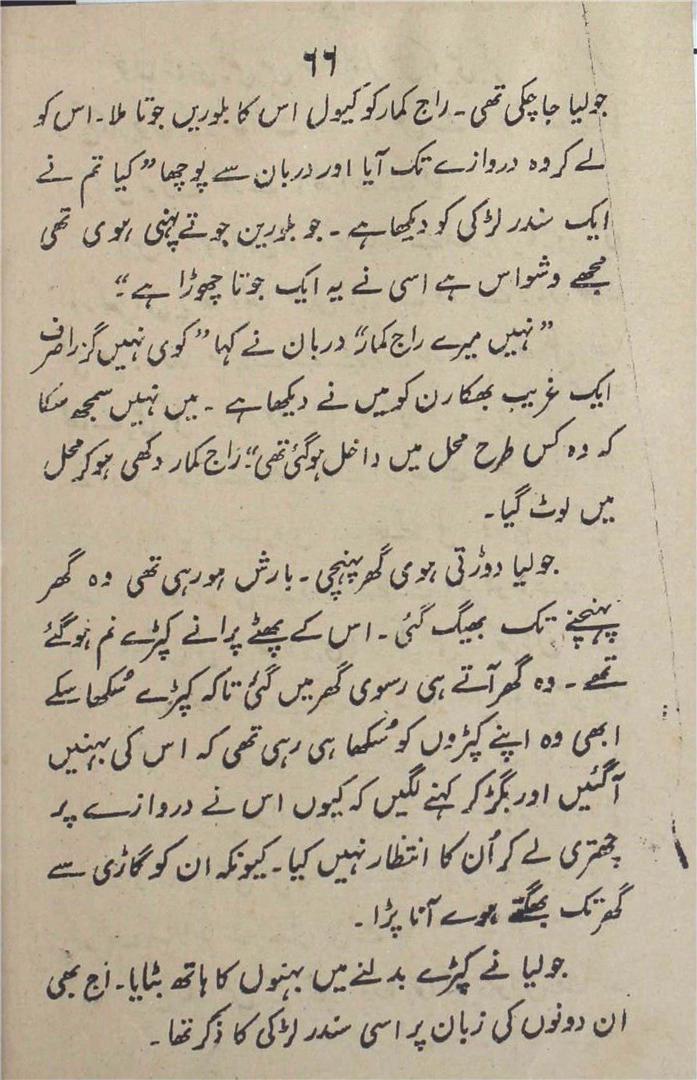 ۶۶
جولیا جاچکی تھی۔ راج کمار کو کیول اس کا بلوریں جوتا ملا۔ اس کو
لے کر وہ دروازے تک آیا اور دربان سے پوچھا ”کیا تم نے
ایک سندر لڑکی کو دیکھا ہے۔ جو بلورین جوتے پہنی ہوی تھی
مجھے وشواس ہے اسی نے یہ ایک جوتا چھوڑا ہے“۔
”نہیں میرے راج کمار“ دربان نے کہا ”کوی نہیں گزرا صرف
ایک غریب بھکارن کو میں نے دیکھا ہے۔ میں نہیں سمجھ سکا
کہ وہ کس طرح محل میں داخل ہوگئی تھی“۔ راج کمار دکھی ہوکر محل
میں لوٹ گیا۔
جولیا دوڑتی ہوی گھر پہنچی۔ بارش ہو رہی تھی وہ گھر
پہنچنے تک بھیگ گئی۔ اس کے پھٹے پرانے کپڑے نم ہوگئے
تھے۔ وہ گھر آتے ہی رسوی گھر میں گئی تاکہ کپڑے سُکھا سکے
ابھی وہ اپنے کپڑوں کو سُکھا ہی رہی تھی کہ اس کی بہنیں
آگئیں اور بگڑ کر کہنے لگیں کہ کیوں اس نے دروازے پر
چھتری لے کر اُن کا انتظار نہیں کیا۔ کیونکہ ان کو گاڑی سے
گھر تک بھیگتے ہوے آنا پڑا۔
جولیا نے کپڑے بدلنے میں بہنوں کا ہاتھ بٹایا۔ آج بھی
ان دونوں کی زبان پر اسی سندر لڑکی کا ذکر تھا۔